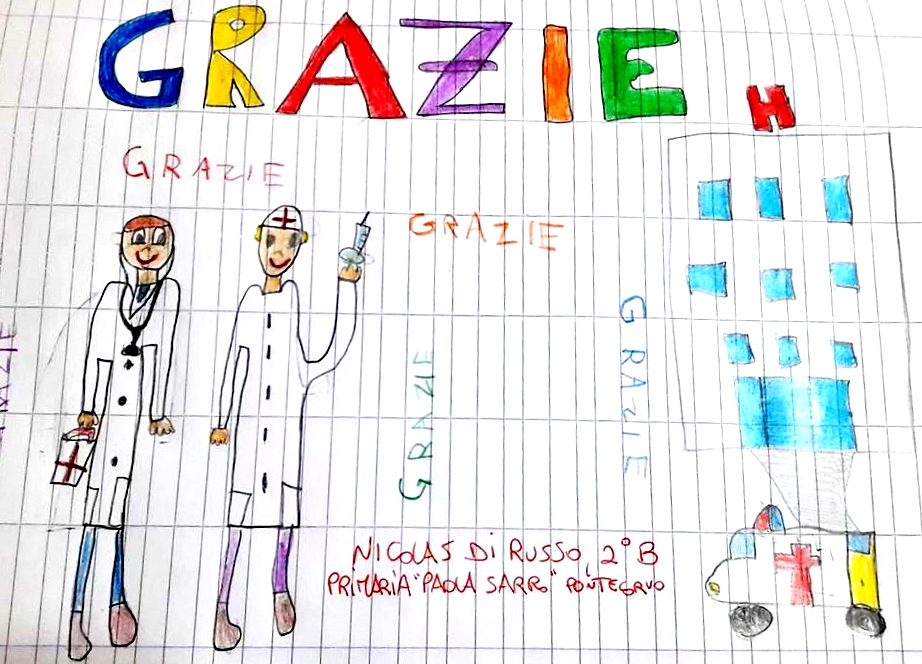 GRAZIE
H
GRAZIE
GRAZIE
GRAZIE
GRAZIE
GRAZIE
NICOLAS Di RUSSO, 2° B
PRIMARIA "PAOLA SARRO" PONTECORVO